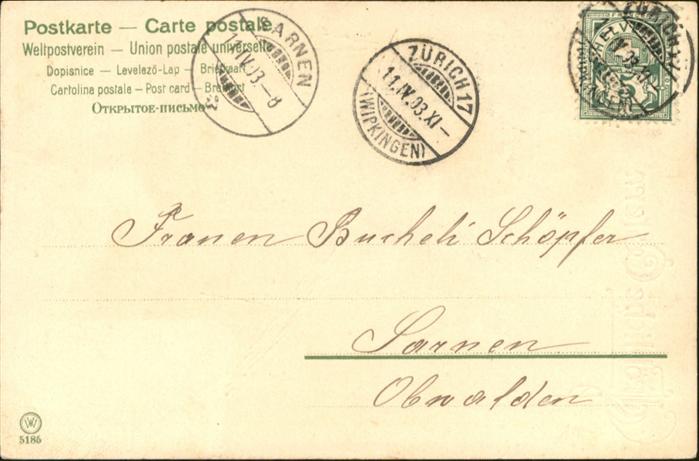 Postkarte — Carte postale
Weltpostverein — Union postale universelle
Dopisnice — Levelező-Lap — Briefkaart
Cartolina postale — Post card — Brefkort
Открытое-письмо
SARNEN
11.IV.03.—8
ZÜRICH 17
11.IV.03.XI—
(WIPKINGEN)
ZÜRICH 17
HELVETIA
Frauen Bucheli Schöpfer
Sarnen
Obwalden
W
5185